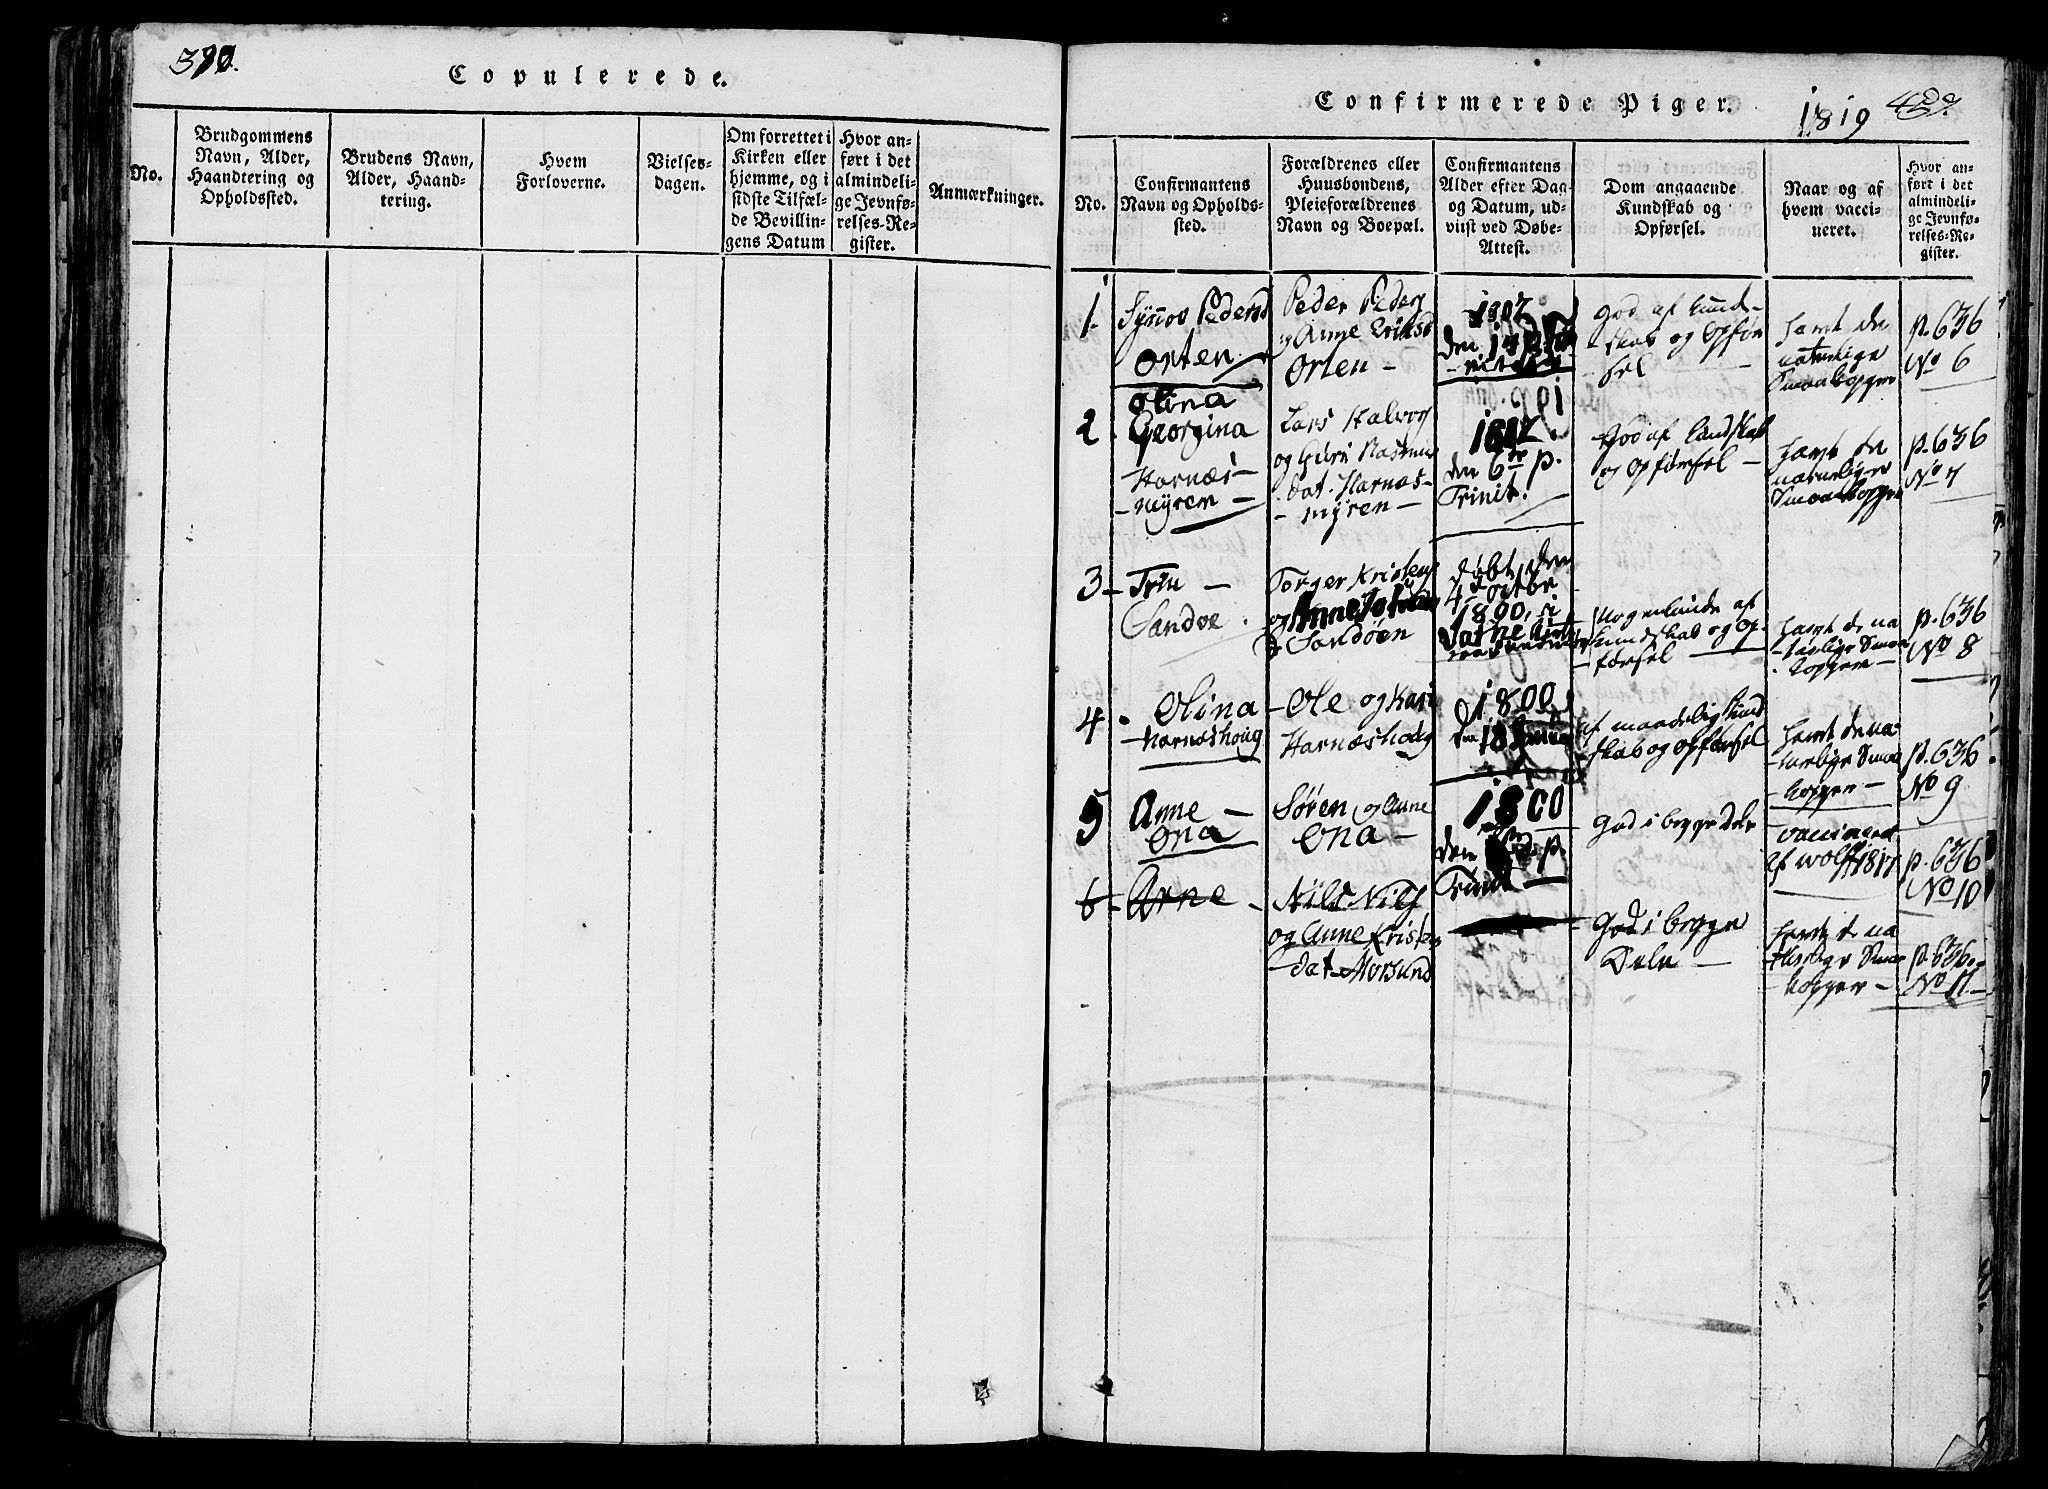 Copulerede.
No.
Brudgommens
Navn, Alder,
Haandtering og
Opholdssted.
Brudens Navn,
Alder, Haand-
tering.
Hvem
Forloverne.
Vielses-
dagen.
Om forrettet i
Kirken eller
hjemme, og i
sidste Tilfæl-
de Bevillin-
gens Datum
Hvor an-
ført i det
almindeli-
ge Jevnfø-
relses-Re-
gister.
Anmærkninger.
Confirmerede Piger.
1819
No.
Confirmantens
Navn og Opholds-
sted.
Forældrenes eller
Huusbondens,
Pleieforældrenes
Navn og Boepæl.
Confirmantens
Alder efter Dag
og Datum, ud-
viist ved Døbe-
Attest.
Dom angaaende
Kundskab og
Opførsel.
Naar og af
hvem vacci-
neret.
Hvor an-
ført i det
almindeli-
ge Jevnfø-
relses-Re-
gister.
1
Synnos Pedersd
Orten
Peder Peders
og Anne Eriksd
Orten -
1802
den
god af Kund-
skab og Opfør
sel -
havt de
naturlige
Smaakopper
p. 636
No 6
2.
Olina
Georgina
Harnæs-
-myren -
Lars Halvors
og Guri Rasmus
dat. Harnæs-
- myren -
1802.
den 6te p.
Trinit.
God af Kundskab
og Opførsel -
havt de
naturlige
Smaakopper
p. 636
No 7
3 -
Trin -
Sandøe.
Torger Kristens
og Anne
Sandøen
døbt den
4de Octbr
1800, i
Nogenlunde af
Kundskab og Op-
førsel
havt de na
-turlige Smaa
kopper -
p. 636
No 8
4.
Olina
-Harnæshoug
- Ole og Kari
Harnæshoug
1800
den 18
af maadelig Kund
skab og Opførsel
havt de na-
-turlige Smaa
- kopper -
p. 636
No 9
5
Anne -
Ona
Søren og Anne
Ona -
1800
den p.
Trinit -
God i begge Dele
vaccineret
af Wolff 1817
p. 636
No 10
6 -
Arne -
Nils Nils
og Anne Kristens
-dat Morsund
God i begge
Dele -
havt de na
-turlige Smaa
kopper -
p. 636
No 11 -